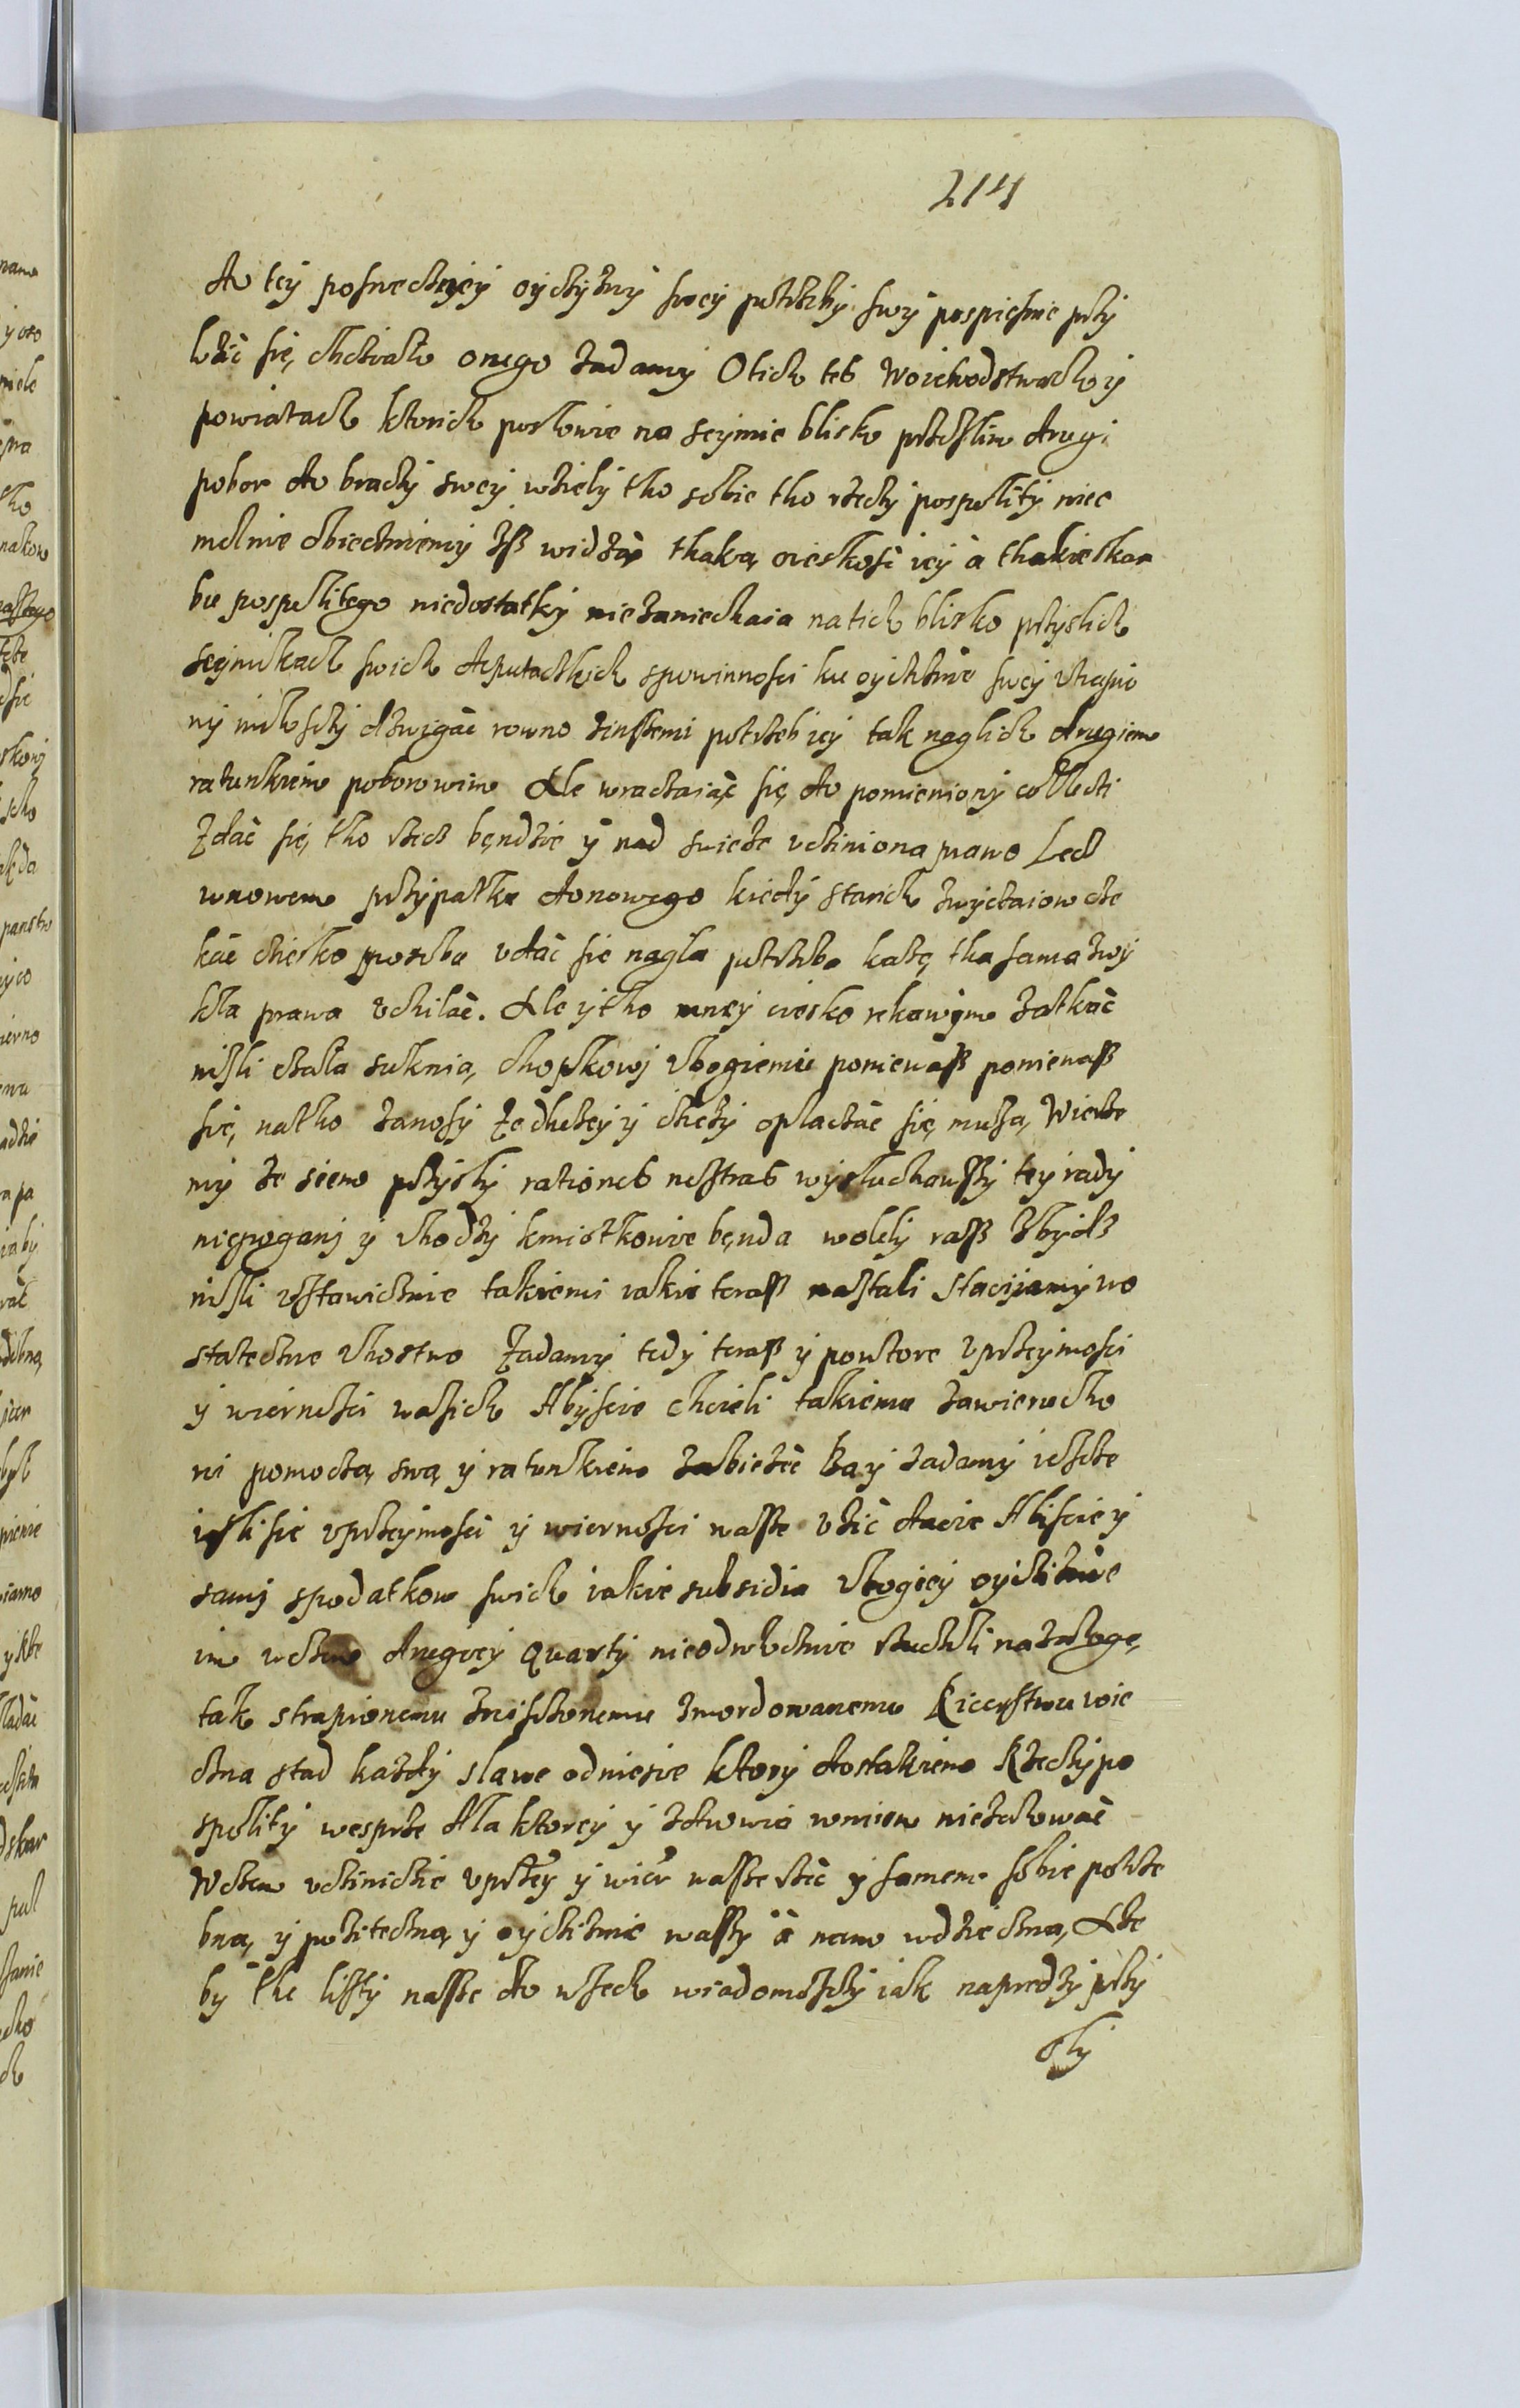 214
do tey posnedniey oyczyzny swey potrzeby swy pospiesnie przy
lozić się, chciało onego żadamy O tich tes Woiewodstwach y
powiatach ktorich posłowie na seymie blisko przeszlim drugi
pobor do braczy swey wzieły tho sobie tho rzeczy pospolity niee
molnie obiecuiemy Iß widzą thaką, cieskość iey à thakie skar
bu pospolitego niedostatky nie zaniechaia na tich blisko przyslich
seymikach swich deputackich s powinności ku oyczyznie swey
ny miłosczy dzwigać rowno z inßemi potrzeb iey tak naglich drugiem
ratunkiem poborowim Ale wraczaiąc się do pomieniony collecti
Zdać się, tho rzecz będzie y nad swieze vcziniona prawo Lecz
w nowem przypatku do nowego kiedy starich zwyczaiow cze
kać ciesko posobu vdać sie nagla potrzeba każe, tha sama zwy
kla prawa vchilać. Ale y tho mney ciesko rekawym zatkać
nizli czała suknia, chopkowj vbogiemu poniewaß poniewaß
się, natho zanosy Ze dluzey y cheży oplaczać się, musza, Wierze
my że siem przysly rationes nostras wysluchawßy tey rady
nie pogani y vbodzy kmiotkowie będa wolely raß zbydz
nisli vstawicznie takiemi iakie teraß nastali staciiamy wo
stateczne vbostwo Żadamy tedy teraß y powtore vprzeymosci
y wiernosci wasich Abyscie chcieli takiemu zawieruchо
ni pomoczą, swą y ratunkiem zabieżeć Ba y żadamy ieszcze
iesli sie vprzeymości y wiernosci waße vżić dacie Abiscie y
samj s podatkow swich iakie subsidia vbogiey oyczyznie
im wczem drugiey Quarty nieodwłocznie na załogę,
tak strapionemu zniszczonemu zmordowanemu Ricerstwu wie
czna stad każdy slawe odniesie ktory dostakiem Rzeczy po
spolity wesprze dla ktorey y zdrowie womiem nieżałować
W czem vczinicie vprzey y wier waße rzec y samem sobie potrze
bna, y pożiteczna, y oyczyznie waßy à nam wdzieczna, Aże
by the listy naße do wszech wiadomosczy iak napredzy przy
sły